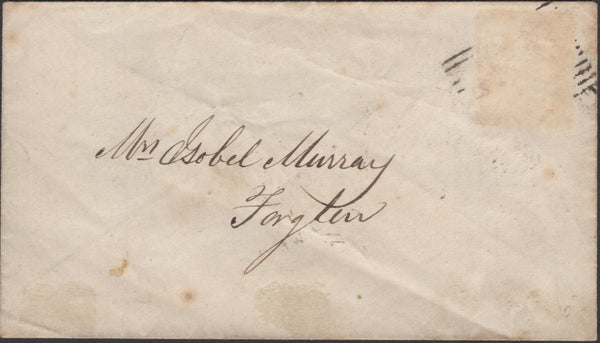 Mrs Isobel Murray
Forgten